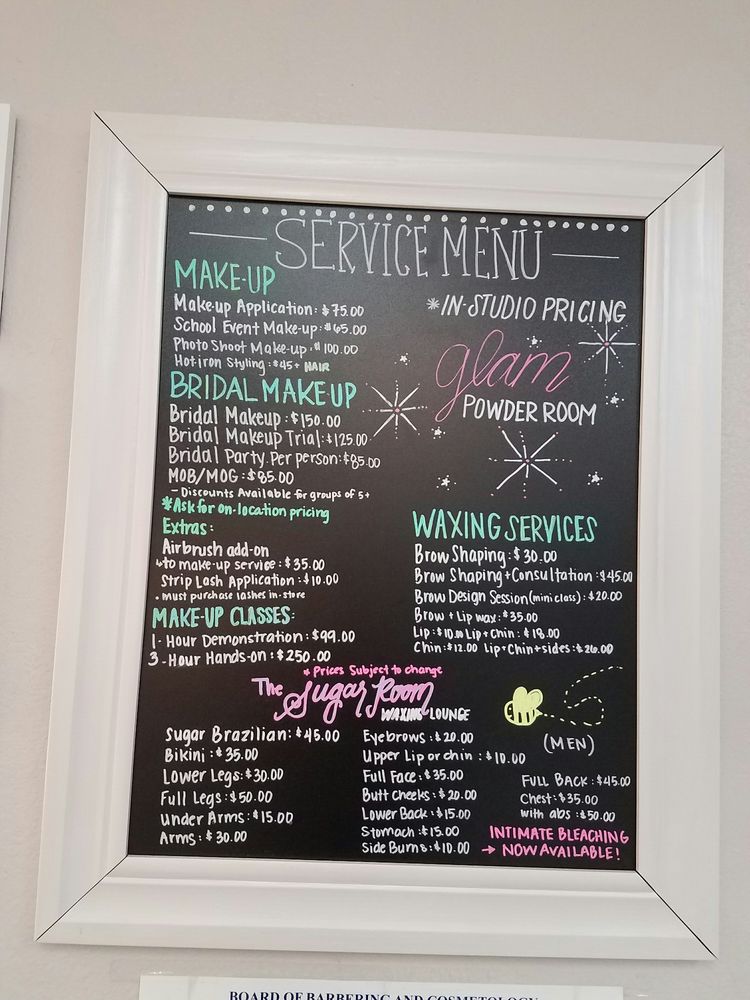 SERVICE MENU
MAKE-UP
Make-up Application: $75.00
School Event Make-up: $65.00
Photo Shoot Make-up: $100.00
Hot iron Styling: $45+ HAIR
*IN-STUDIO PRICING
glam
POWDER ROOM
BRIDAL MAKE-UP
Bridal Makeup: $150.00
Bridal Makeup Trial: $125.00
Bridal Party. Per person: $85.00
MOB/MOG: $85.00
- Discounts Available for groups of 5+
*Ask for on-location pricing
Extras:
Airbrush add-on
↳ to make-up service: $35.00
Strip Lash Application: $10.00
• must purchase lashes in-store
MAKE-UP CLASSES:
1-Hour Demonstration: $99.00
3-Hour Hands-on: $250.00
WAXING SERVICES
Brow Shaping: $30.00
Brow Shaping + Consultation: $45.00
Brow Design Session (mini class): $20.00
Brow + Lip wax: $35.00
Lip: $10.00 Lip + Chin: $18.00
Chin: $12.00 Lip + Chin + sides: $26.00
* Prices Subject to change
The Sugar Room
WAXING LOUNGE
Sugar Brazilian: $45.00
Bikini: $35.00
Lower Legs: $30.00
Full Legs: $50.00
Under Arms: $15.00
Arms: $30.00
Eyebrows: $20.00
Upper Lip or chin: $10.00
Full Face: $35.00
Butt Cheeks: $20.00
Lower Back: $15.00
Stomach: $15.00
Side Burns: $10.00
(MEN)
FULL BACK: $45.00
Chest: $35.00
with abs: $50.00
INTIMATE BLEACHING
→ NOW AVAILABLE!
BOARD OF BARBERING AND COSMETOLOGY